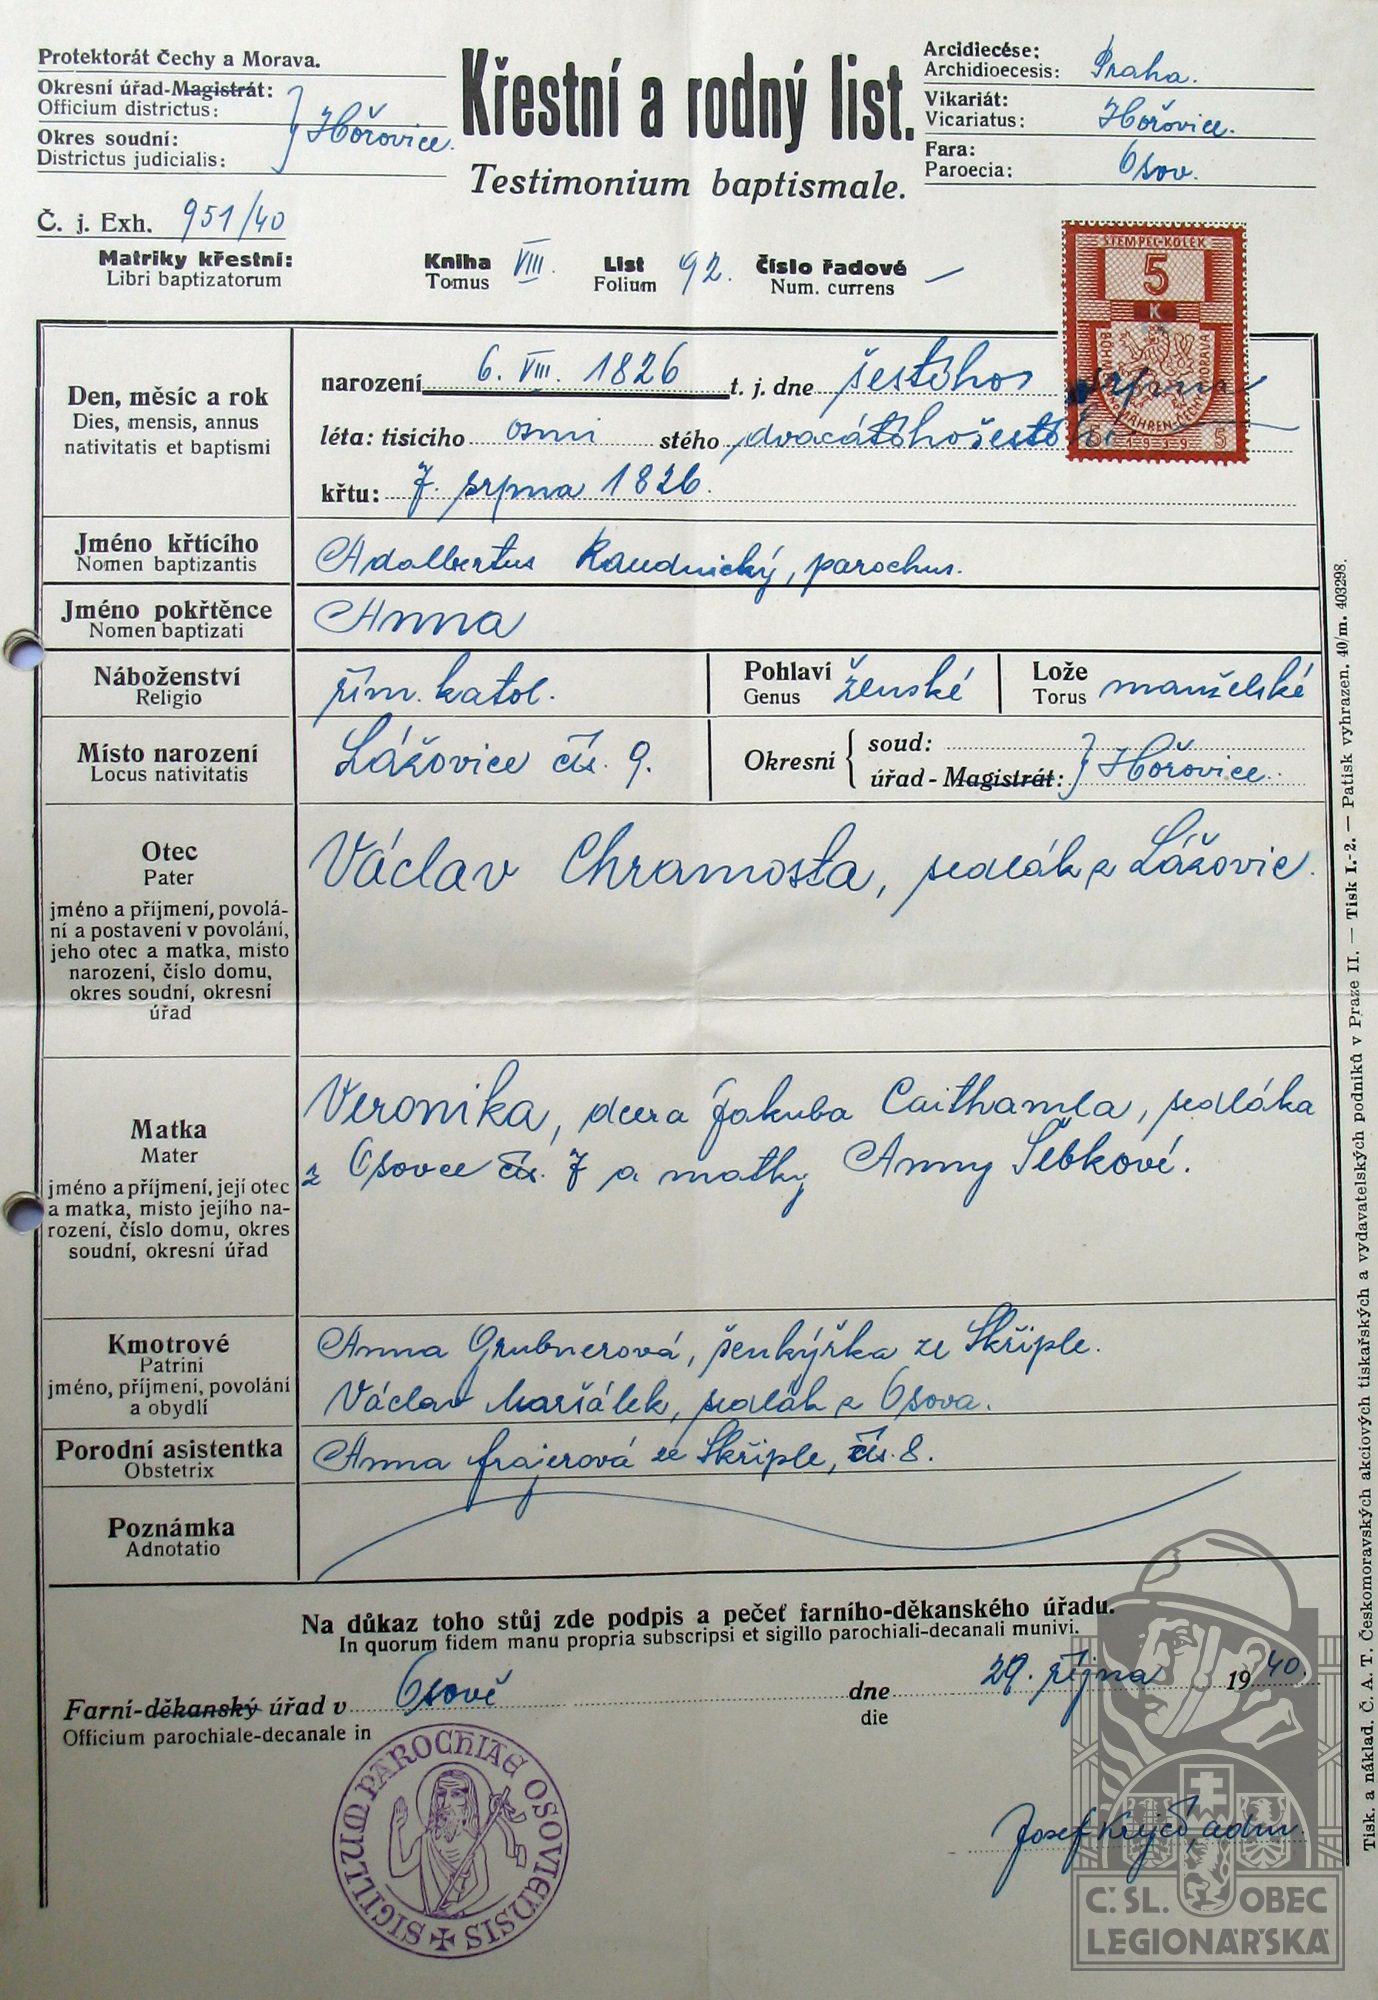 Protektorát Čechy a Morava.
Okresní úřad-Magistrát:
Officium districtus:
Okres soudní:
Districtus judicialis:
Hořovice.
Č. j. Exh. 951/40
Křestní a rodný list.
Testimonium baptismale.
Arcidiecése:
Archidioecesis: Praha.
Vikariát:
Vicariatus: Hořovice.
Fara:
Paroecia: Osov.
Matriky křestní: Kniha VIII. List 92. Číslo řadové —
Libri baptizatorum Tomus Folium Num. currens
STEMPEL-KOLEK
5
K
BÖHMEN UND MÄHREN ČECHY A MORAVA
5 1939 5
Den, měsíc a rok
Dies, mensis, annus
nativitatis et baptismi
narození 6. VIII. 1826 t. j. dne šestého srpna
léta: tisícího osmi stého dvacátéhošestého
křtu: 7. srpna 1826.
Jméno křtícího
Nomen baptizantis
Adalbertus Raudnický, parochus.
Jméno pokřtěnce
Nomen baptizati
Anna
Náboženství
Religio
řím. katol.
Pohlaví
Genus
ženské
Lože
Torus
manželské
Místo narození
Locus nativitatis
Lážovice čís. 9.
Okresní
soud:
úřad-Magistrát:
Hořovice.
Otec
Pater
jméno a příjmení, povolá-
ní a postavení v povolání,
jeho otec a matka, místo
narození, číslo domu,
okres soudní, okresní
úřad
Václav Chramosta, sedlák z Lážovic.
Matka
Mater
jméno a příjmení, její otec
a matka, místo jejího na-
rození, číslo domu, okres
soudní, okresní úřad
Veronika, dcera Jakuba Caithamla, sedláka
z Osovce čís. 7 a matky Anny Šebkové.
Kmotrové
Patrini
jméno, příjmení, povolání
a obydlí
Anna Grubnerová, šenkýřka ze Skřiple.
Václav Maršálek, sedlák z Osova.
Porodní asistentka
Obstetrix
Anna Frajerová ze Skřiple, čís. 8.
Poznámka
Adnotatio
Na důkaz toho stůj zde podpis a pečeť farního-děkanského úřadu.
In quorum fidem manu propria subscripsi et sigillo parochiali-decanali munivi.
Farní-děkanský úřad v Osově dne 29. října 1940.
Officium parochiale-decanale in die
SIGILLUM PAROCHIAE OSOVIENSIS
Josef Krejčí, adm
Č. SL. OBEC
LEGIONÁŘSKÁ
Tisk. a náklad. Č. A. T. Českomoravských akciových tiskařských a vydavatelských podniků v Praze II. — Tisk I.-2. — Patisk vyhrazen. 40/m. 403298.